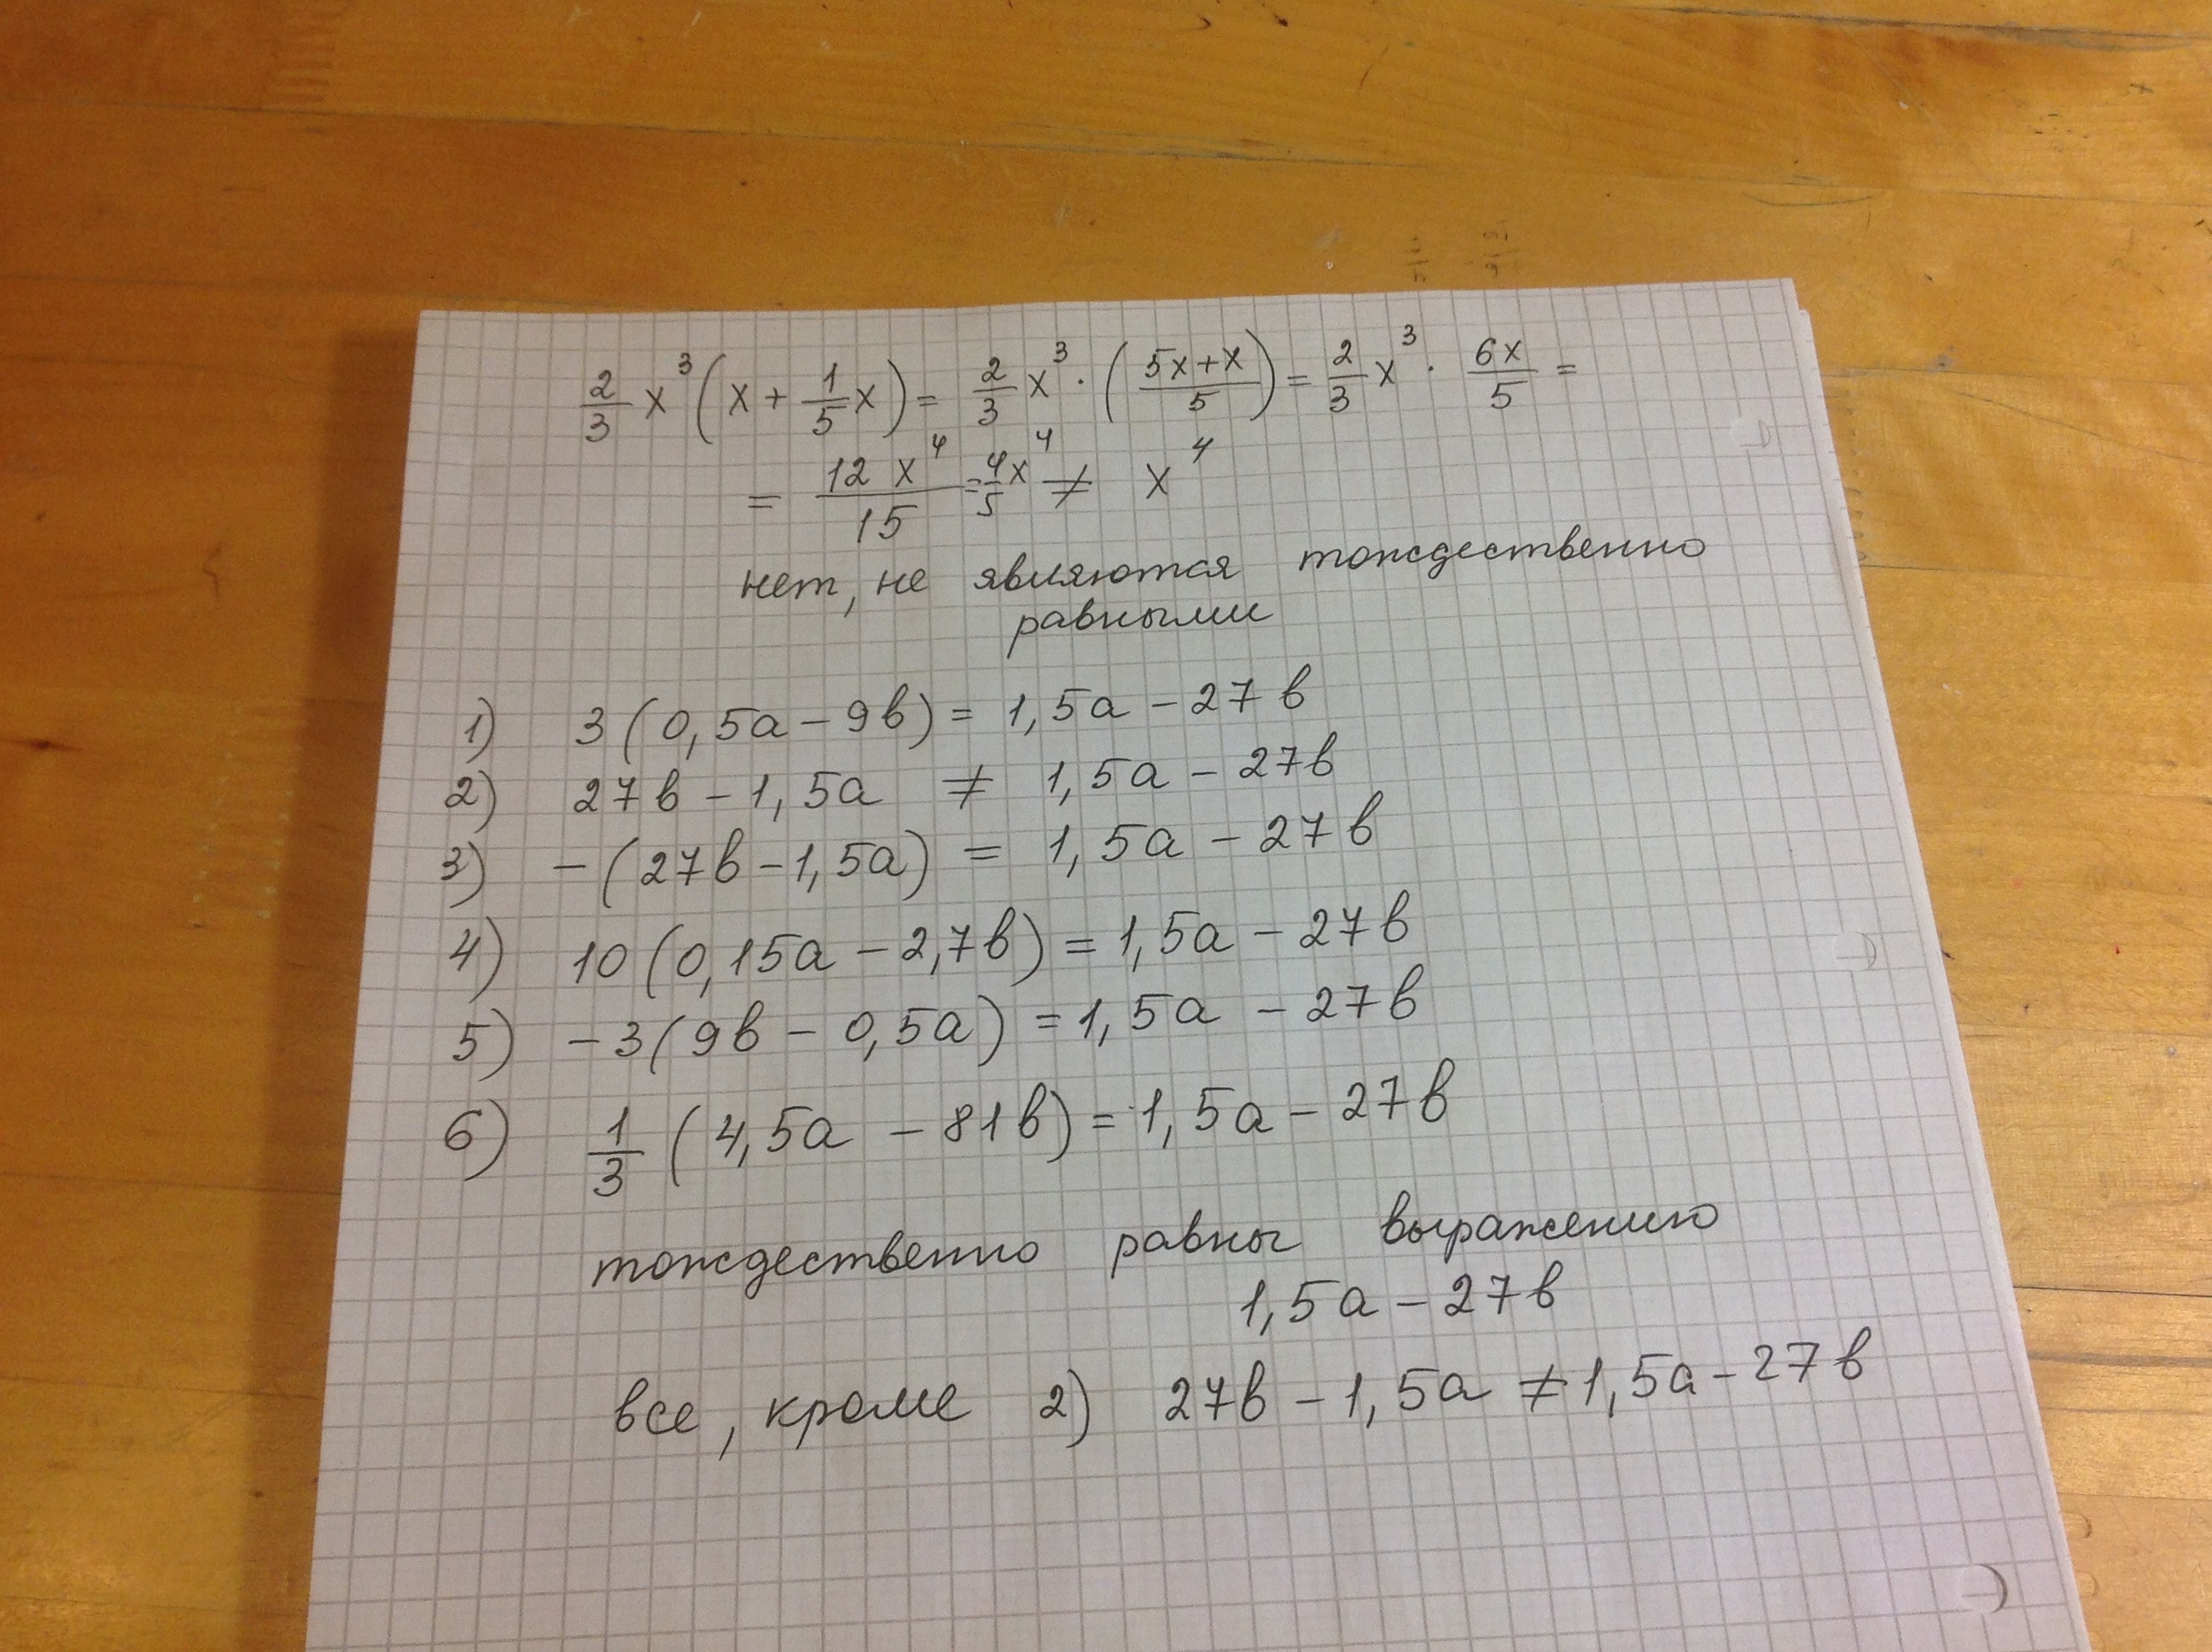 2/3 x³ (x + 1/5 x) = 2/3 x³ · ((5x+x)/5) = 2/3 x³ · 6x/5 =
= 12x⁴/15 = 4/5 x⁴ ≠ x⁴
нет, не являются тождественно
равными
1) 3(0,5a − 9в) = 1,5a − 27в
2) 27в − 1,5a ≠ 1,5a − 27в
3) −(27в − 1,5a) = 1,5a − 27в
4) 10(0,15a − 2,7в) = 1,5a − 27в
5) −3(9в − 0,5a) = 1,5a − 27в
6) 1/3 (4,5a − 81в) = 1,5a − 27в
тождественно равны выражению
1,5a − 27в
все, кроме 2) 27в − 1,5a ≠ 1,5a − 27в